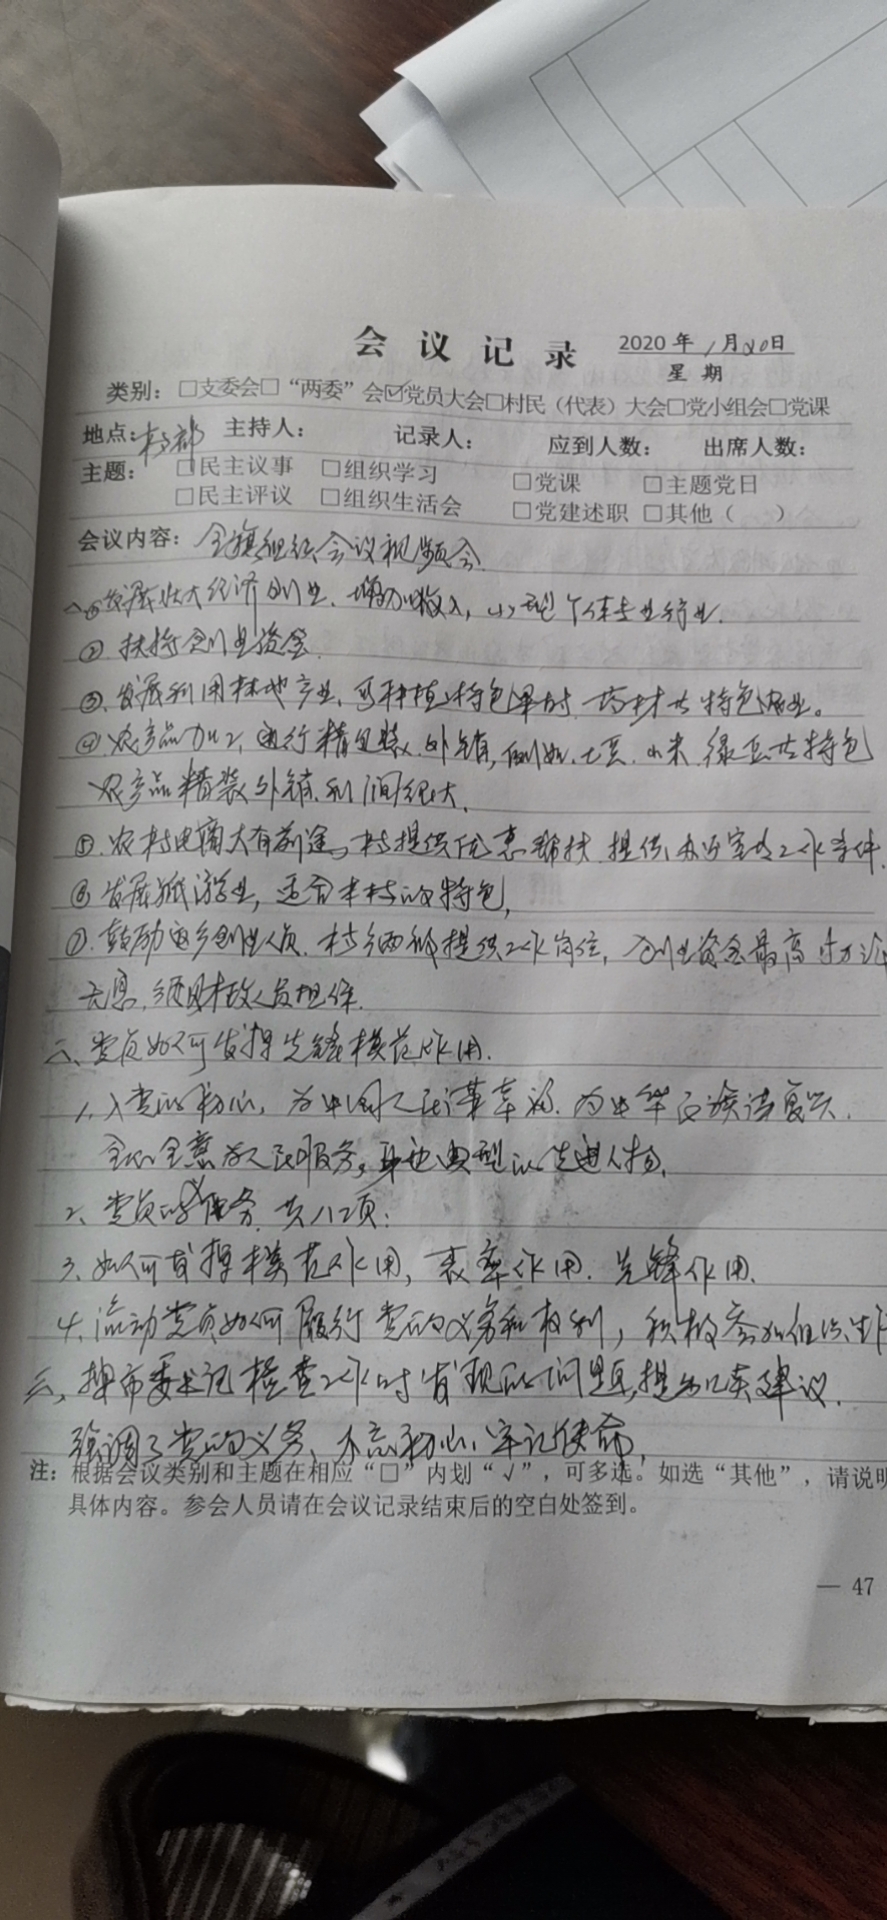 会议记录 2020年1月20日
星期
类别：□支委会□“两委”会☑党员大会□村民（代表）大会□党小组会□党课
地点：村部 主持人： 记录人： 应到人数： 出席人数：
主题： □民主议事 □组织学习 □党课 □主题党日
□民主评议 □组织生活会 □党建述职 □其他（ ）
会议内容：全旗组织会议视频会
一、①发展壮大经济创业、增加收入，
②扶持创业资金
③、发展利用林地产业、种植特色果树、药材等特色农业。
④农产品加工，进行精包装、外销，例如：土豆、小米、绿豆等特色
农产品精装外销、利润很大、
⑤、农村电商大有前途，村提供优惠帮扶、提供办公室等工作条件、
⑥发展旅游业，适合本村的特色，
⑦、鼓励返乡创业人员、村乡两级提供工作岗位，创业资金最高
无息、须财政人员担保、
二、党员如何发挥先锋模范作用、
1、入党的初心，为中国人民谋幸福、为中华民族谋复兴、
全心全意为人民服务，身边典型的先进人物、
2、党员的义务、共八项：
3、如何发挥模范作用，表率作用、先锋作用、
4、流动党员如何履行党的义务和权利，积极参加组织生
三、市委书记检查工作时发现的问题，提出几条建议、
强调了党的义务、不忘初心、牢记使命、
注：根据会议类别和主题在相应“□”内划“√”，可多选。如选“其他”，请说明
具体内容。参会人员请在会议记录结束后的空白处签到。
— 47